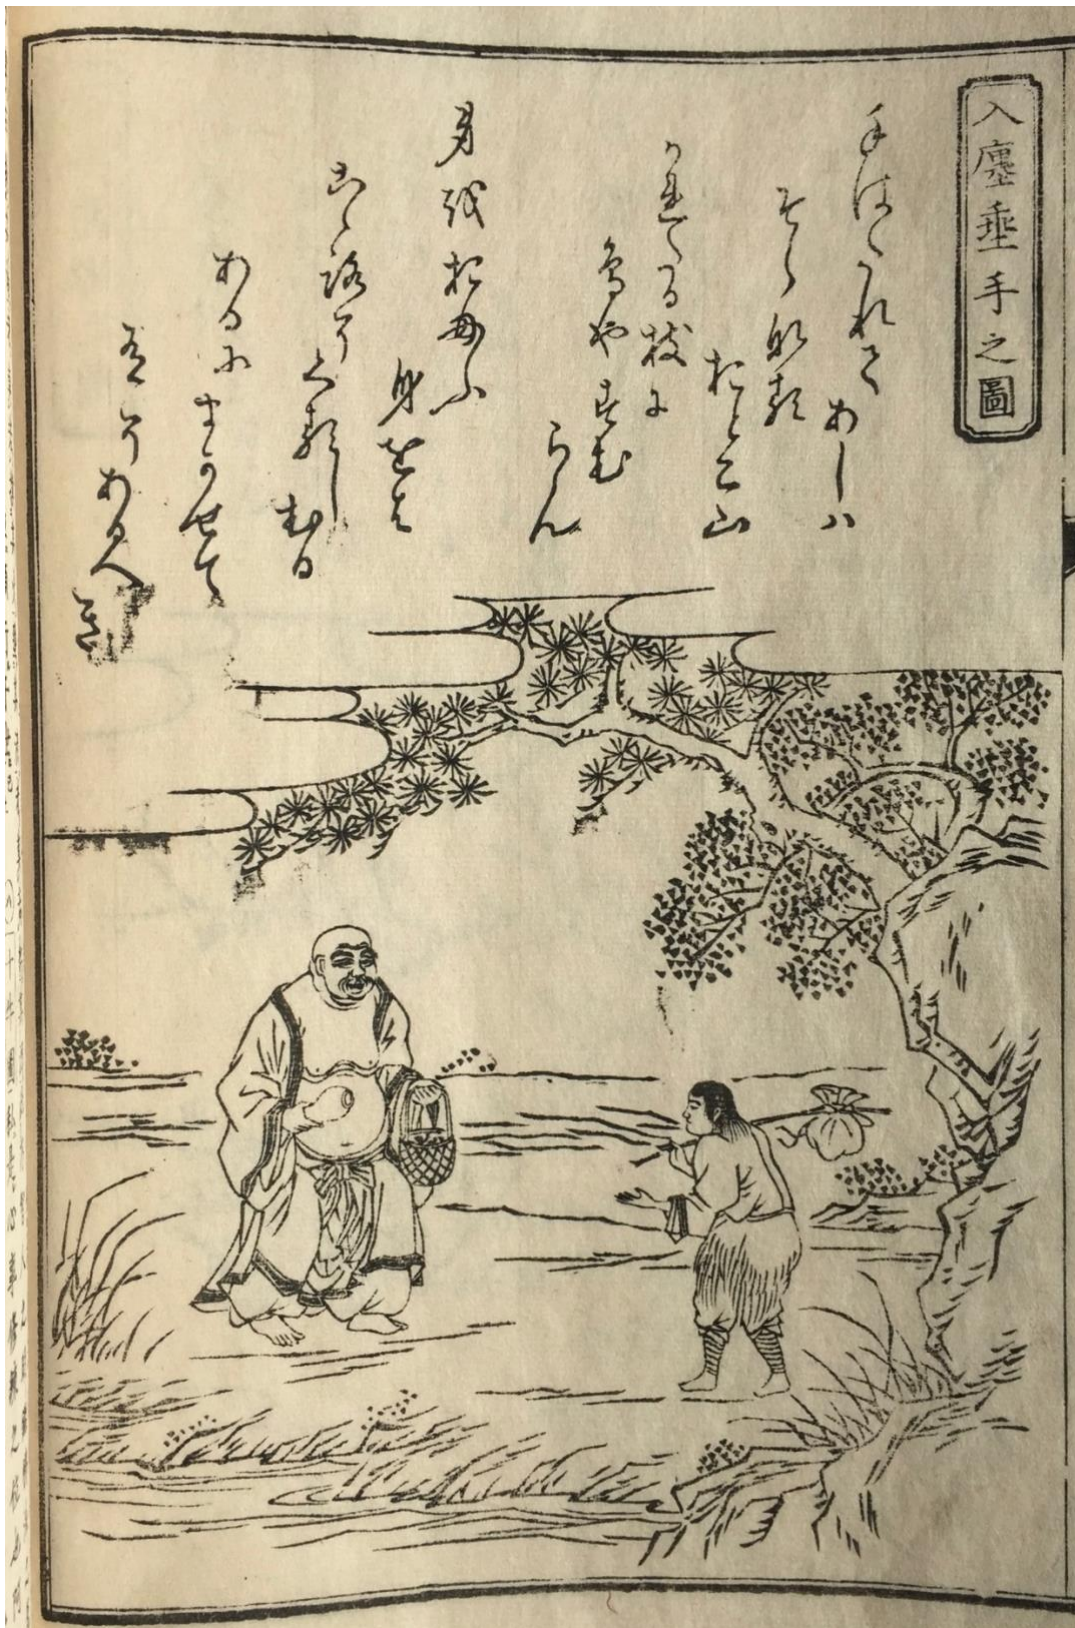 入廛垂手之圖
手はたれて
あしハ
そらなる
おとこ山
かれたる枝に
鳥やすむ
らん
身をおもふ
身をは
こゝろそ
くるしむる
あるに
まかせて
有そ
あるへき